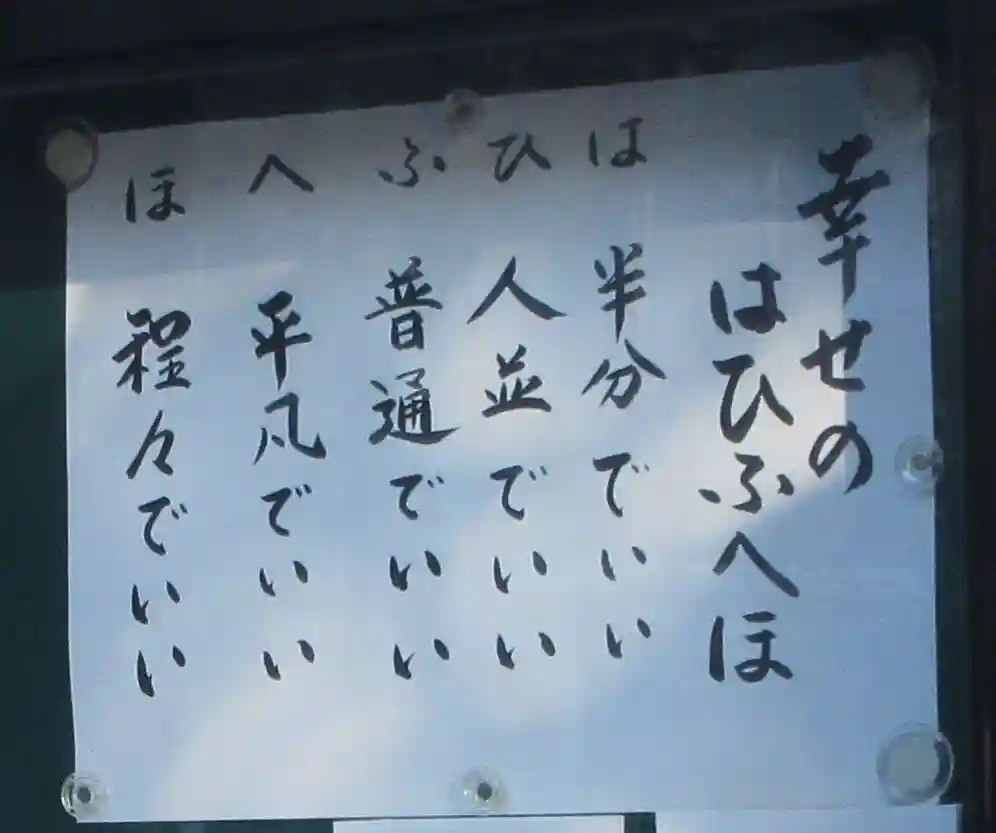 幸せの
はひふへほ
は 半分でいい
ひ 人並でいい
ふ 普通でいい
へ 平凡でいい
ほ 程々でいい